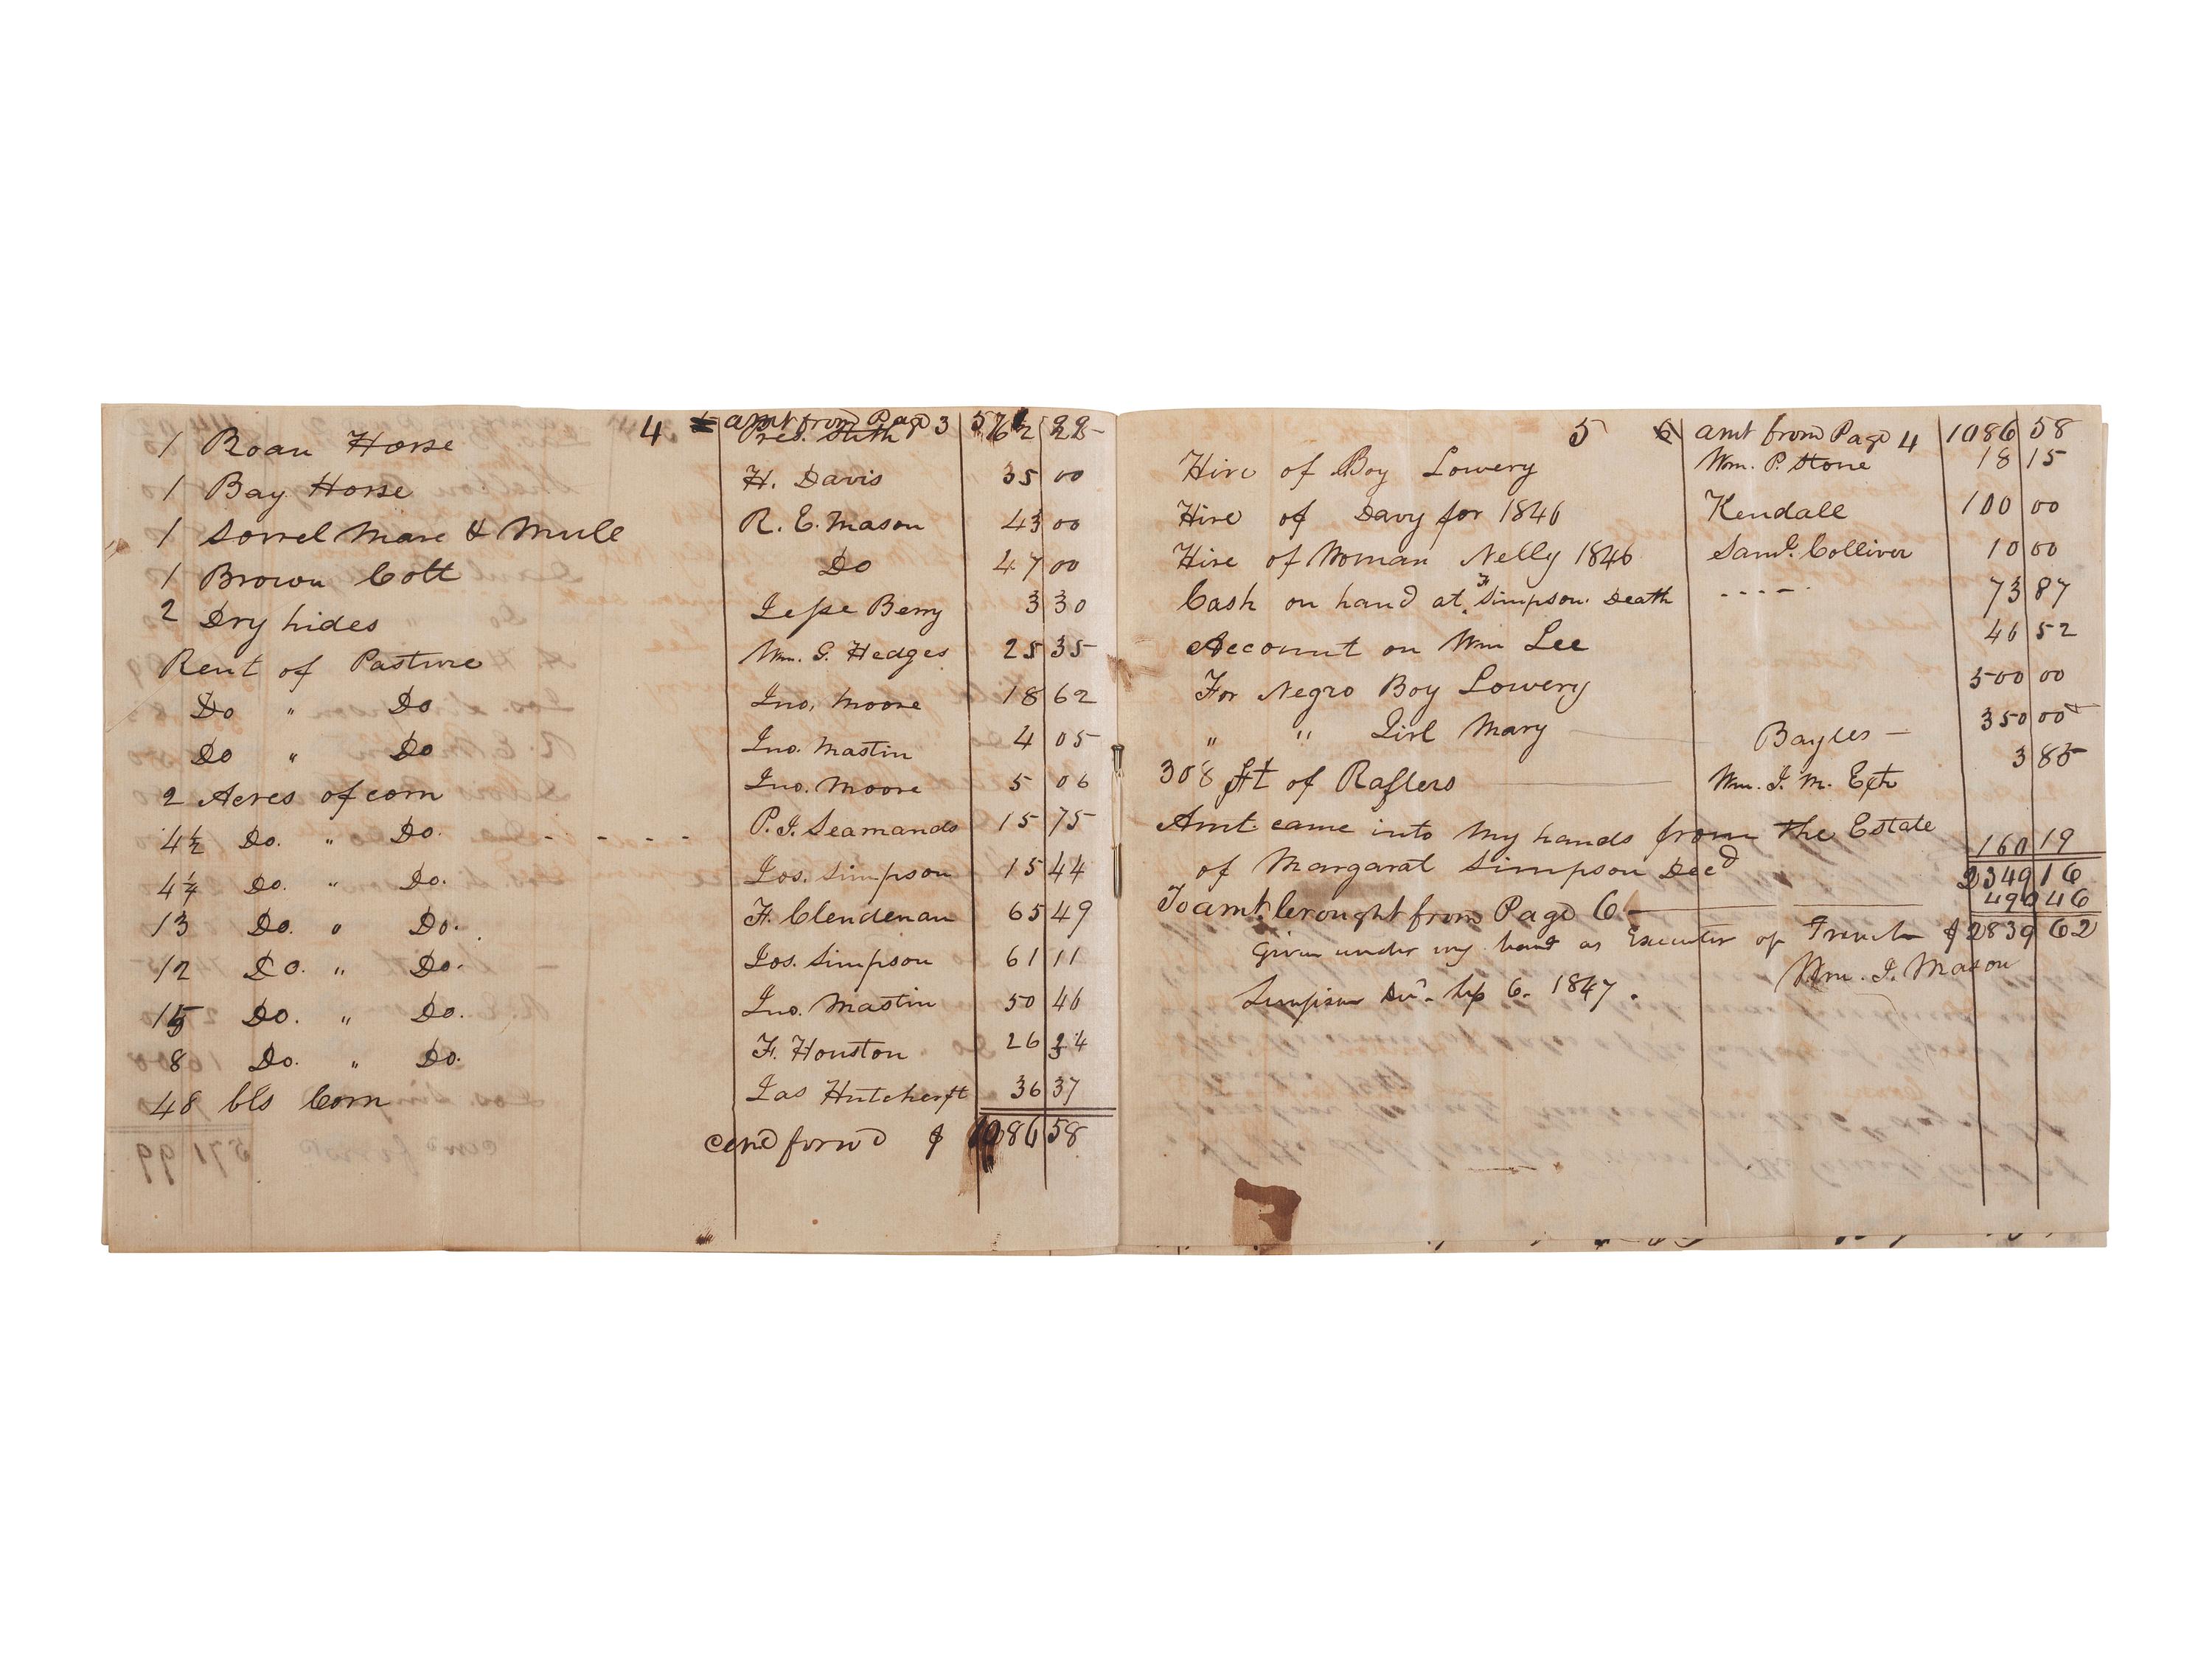 4 amt from Page 3
1 Roan Horse Pres. Stith
1 Bay Horse H. Davis 35 00
1 Sorrel Mare & Mule R. E. Mason 43 00
1 Brown Colt Do 47 00
2 Dry hides Jesse Berry 3 30
Rent of Pasture Wm. G. Hedges 25 35
Do " Do Jno. Moore 18 62
Do " Do Jno. Mastin 4 05
2 Acres of corn Jno. Moore 5 06
4½ Do. " Do. - - - - P. J. Seamands 15 75
4¼ Do. " Do. Jos. Simpson 15 44
13 Do. " Do. F. Clendenan 65 49
12 Do. " Do. Jos. Simpson 61 11
15 Do. " Do. Jno. Mastin 50 46
8 Do. " Do. F. Houston 26 24
48 bls Corn Jas Hutcherft 36 37
forwd $ 1086 58
5 amt from Page 4 1086 58
Hire of Boy Lowery Wm. P. Stone 18 15
Hire of Davy for 1846 Kendall 100 00
Hire of Woman Nelly 1846 Saml. Colliver 10 00
Cash on hand at F Simpson Death - - - - 73 87
Account on Wm Lee 46 52
For Negro Boy Lowery 500 00
" " Girl Mary Bayles — 350 00
308 ft of Rafters Wm. J. M. Extr 3 85
Amt. came into my hands from the Estate
of Margarat Simpson Decd 160 19
2349 16
To amt. brought from Page 6 — 490 46
Given under my hand as Executor of $2839 62
Simpson Decd. Sep 6. 1847. Wm. J. Mason
571 99